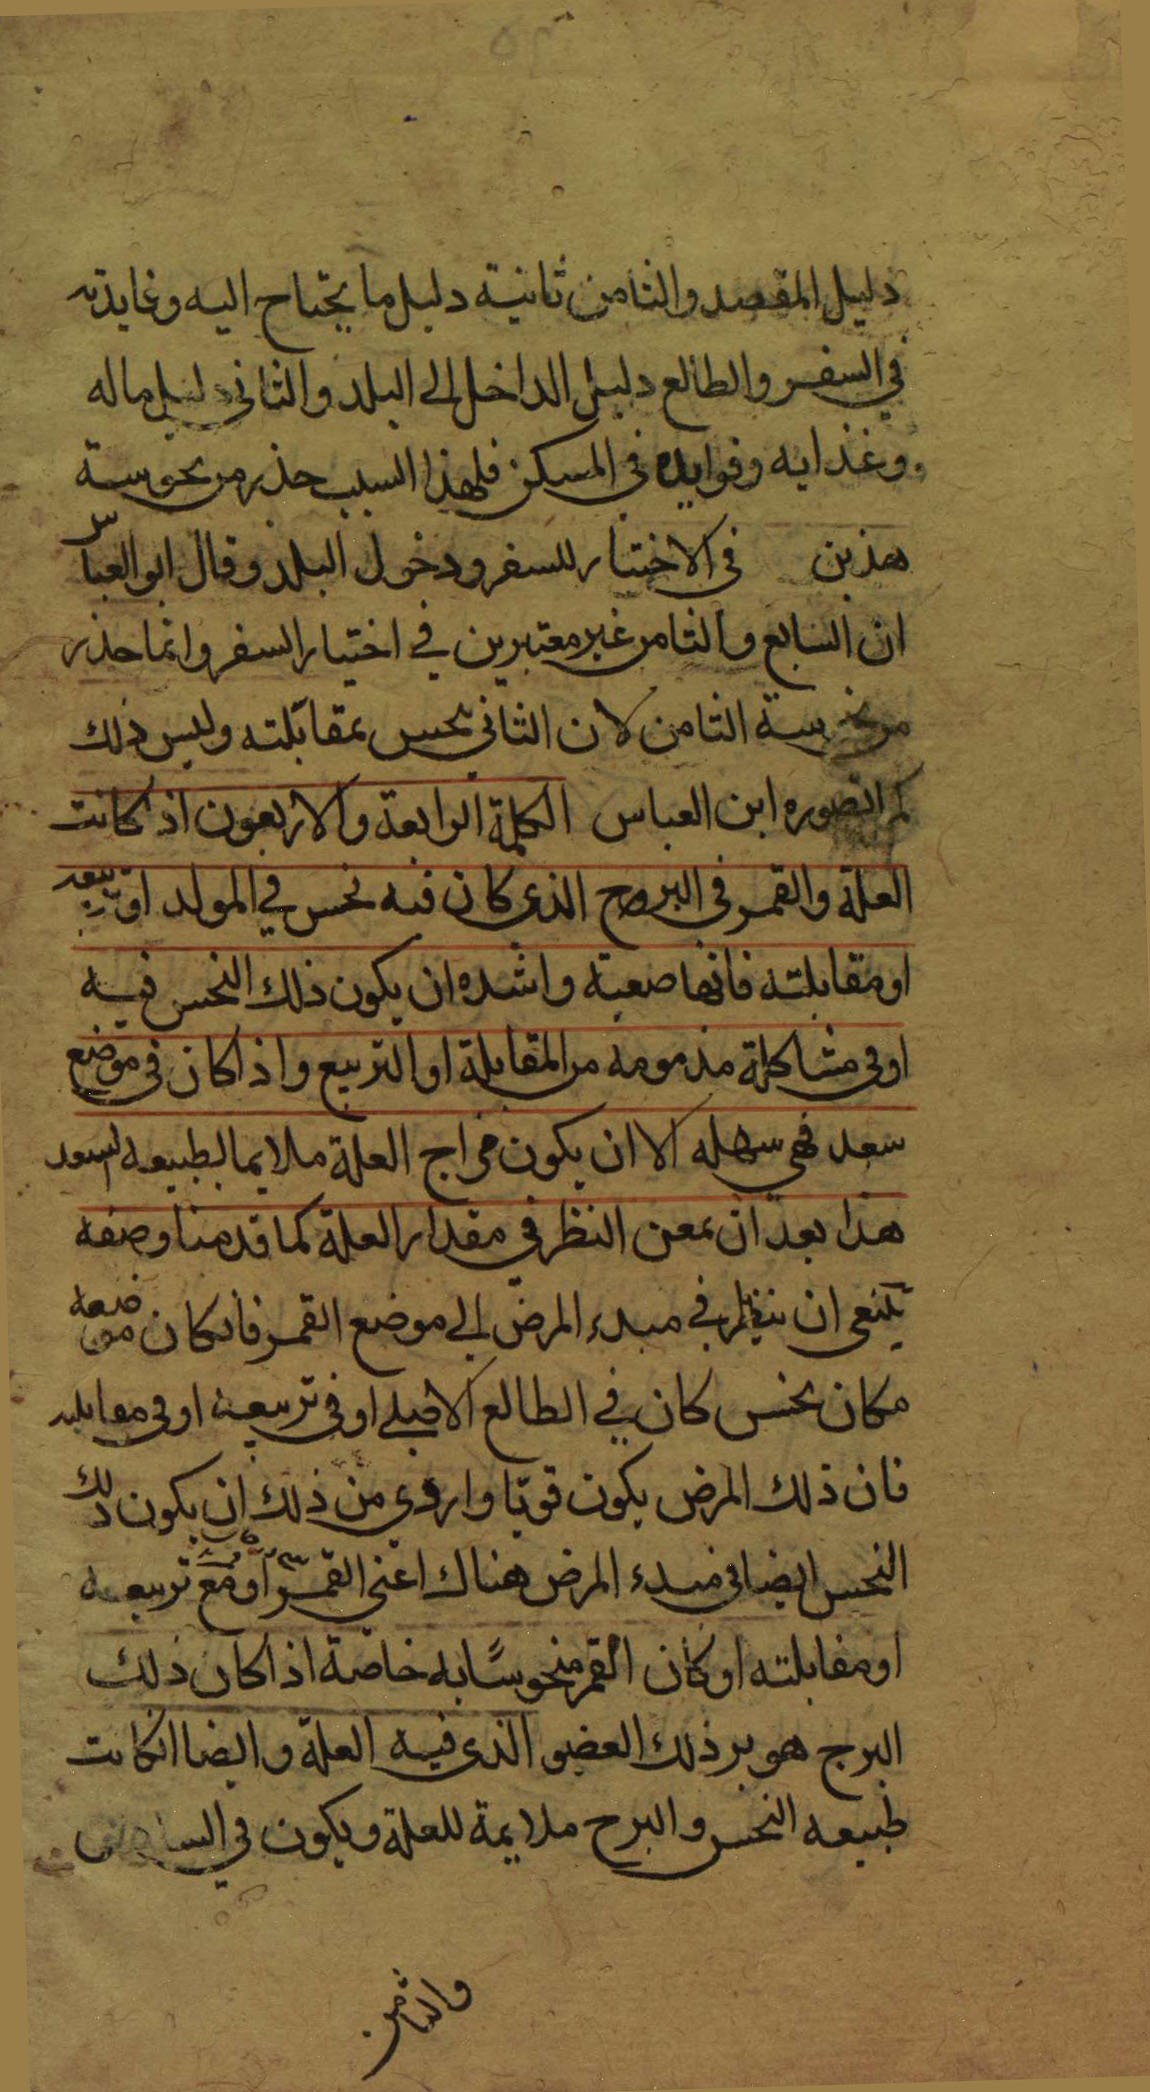 دليل المقصد والثامن ثانية دليل ما يحتاح اليه وغايته
في السفر والطالع دليل الداخل الى البلد والثاني دليل ماله
وغذايه وفوايده في المسكن فلهذا السبب حذر من نحوسة
هذين في الاختيار للسفر ودخول البلد وقال ابو العباس
ان السابع والثامن غير معتبرين في اختيار السفر وانما حذر
من نحوسة الثامن لان الثاني نحس بمقابلته وليس ذلك
كما تصوره ابن العباس الكلمة الرابعة والاربعون اذا كانت
العلة والقمر في البروج الذي كان فيه نحس في المولد او تربيعه
او مقابلته فانها صعبة واشده ان يكون ذلك النحس فيه
او في مشاكلة مذمومة من المقابلة او التربيع واذا كان في موضع
سعد فهي سهله الا ان يكون مزاج العلة ملايما لطبيعه السعد
هذا بعد ان نمعن النظر في مقدار العلة كما قدمنا وصفه
ينبغي ان ننظر في مبدء المرض الى موضع القمر فان كان موضعه
مكان نحس كان في الطالع الاصلي او في تربيعه او في مقابلته
فان ذلك المرض يكون قويا واردى من ذلك ان يكون ذلك
النحس ايضا في مبدء المرض هناك اعني القمر او مع تربيعه
او مقابلته او كان القمر منحوسًا به خاصة اذا كان ذلك
البرج هو برذلك العضو الذي فيه العلة وايضا ان كانت
طبيعه النحس والبرج ملايمة للعلة ويكون في السادس
والثامن